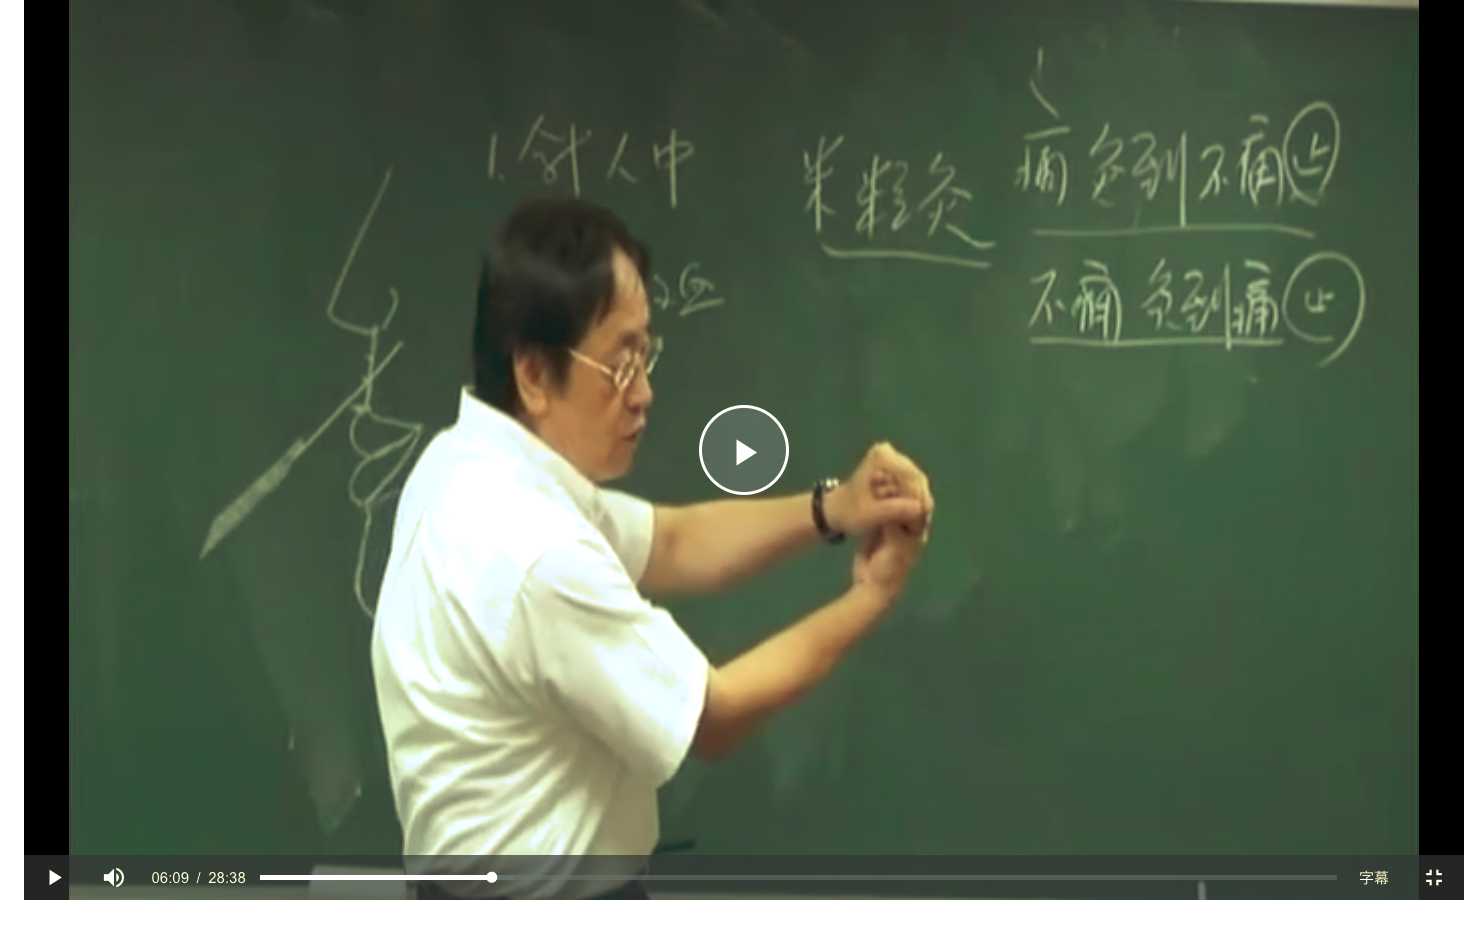 1. 針人中
米粒灸
痛 灸到不痛 止
不痛 灸到痛 止
06:09 / 28:38
字幕